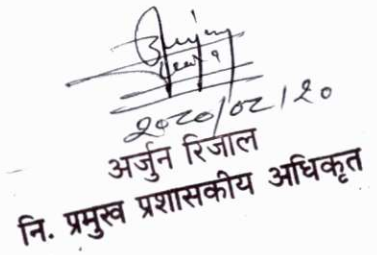 २०८०/०८/२०
अर्जुन रिजाल
नि. प्रमुख प्रशासकीय अधिकृत